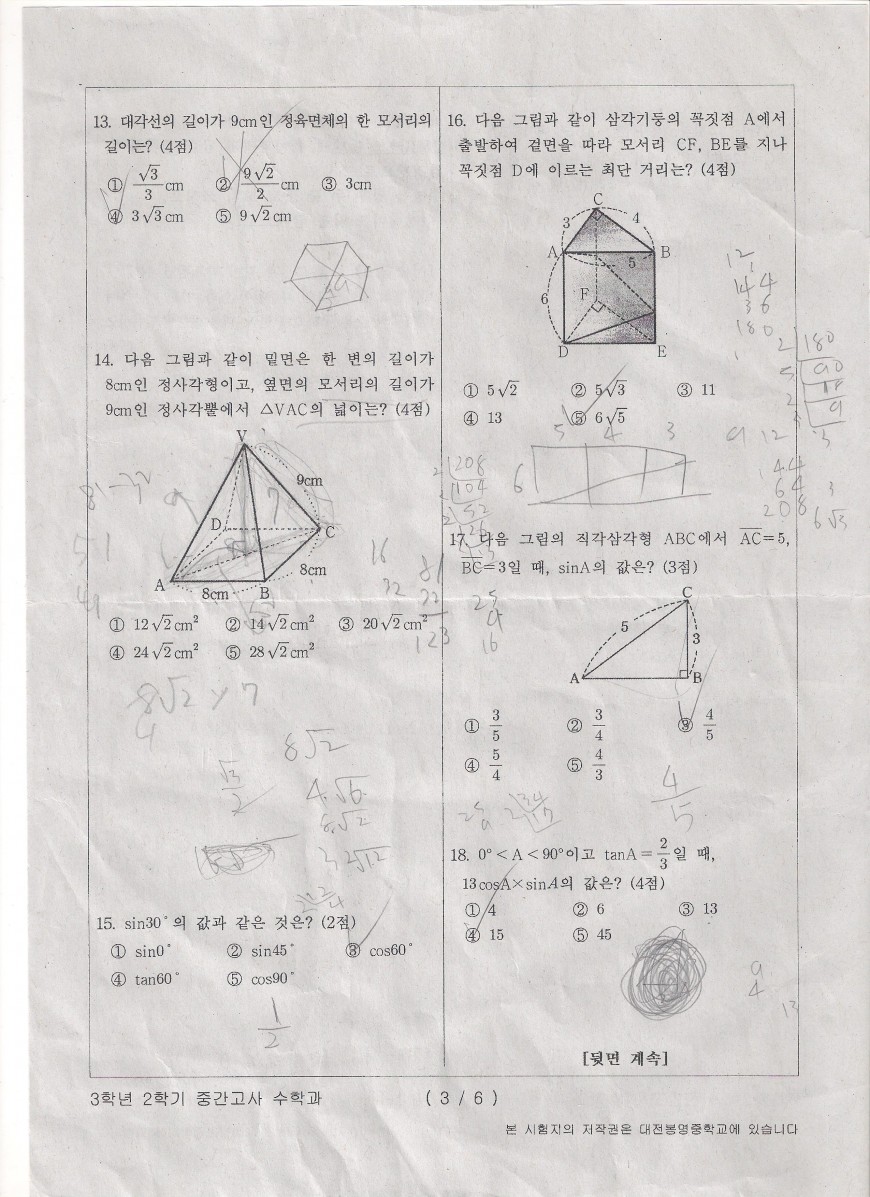 13. 대각선의 길이가 9cm인 정육면체의 한 모서리의
길이는? (4점)
① √3/3 cm ② 9√2/2 cm ③ 3cm
④ 3√3cm ⑤ 9√2cm
14. 다음 그림과 같이 밑면은 한 변의 길이가
8cm인 정사각형이고, 옆면의 모서리의 길이가
9cm인 정사각뿔에서 △VAC의 넓이는? (4점)
V
9cm
D
C
A
B
8cm
8cm
① 12√2cm² ② 14√2cm² ③ 20√2cm²
④ 24√2cm² ⑤ 28√2cm²
8√2 × 7
8√2
√3/2
4√6
15. sin30°의 값과 같은 것은? (2점)
① sin0° ② sin45° ③ cos60°
④ tan60° ⑤ cos90°
1/2
16. 다음 그림과 같이 삼각기둥의 꼭짓점 A에서
출발하여 겉면을 따라 모서리 CF, BE를 지나
꼭짓점 D에 이르는 최단 거리는? (4점)
C
3
4
A
B
5
6
F
D
E
12
144
36
180
2 180
90
9
① 5√2 ② 5√3 ③ 11
④ 13 ⑤ 6√5
5 4 3
6
9 12
144
64
208
6√3
2 208
2 104
2 52
17. 다음 그림의 직각삼각형 ABC에서 AC=5,
BC=3일 때, sinA의 값은? (3점)
C
5
3
A
B
16
32
81
32
123
25
9
16
① 3/5 ② 3/4 ③ 4/5
④ 5/4 ⑤ 4/3
4/5
18. 0°<A<90°이고 tanA=2/3일 때,
13cosA×sinA의 값은? (4점)
① 4 ② 6 ③ 13
④ 15 ⑤ 45
9
4
13
[뒷면 계속]
3학년 2학기 중간고사 수학과 ( 3 / 6 )
본 시험지의 저작권은 대전봉명중학교에 있습니다